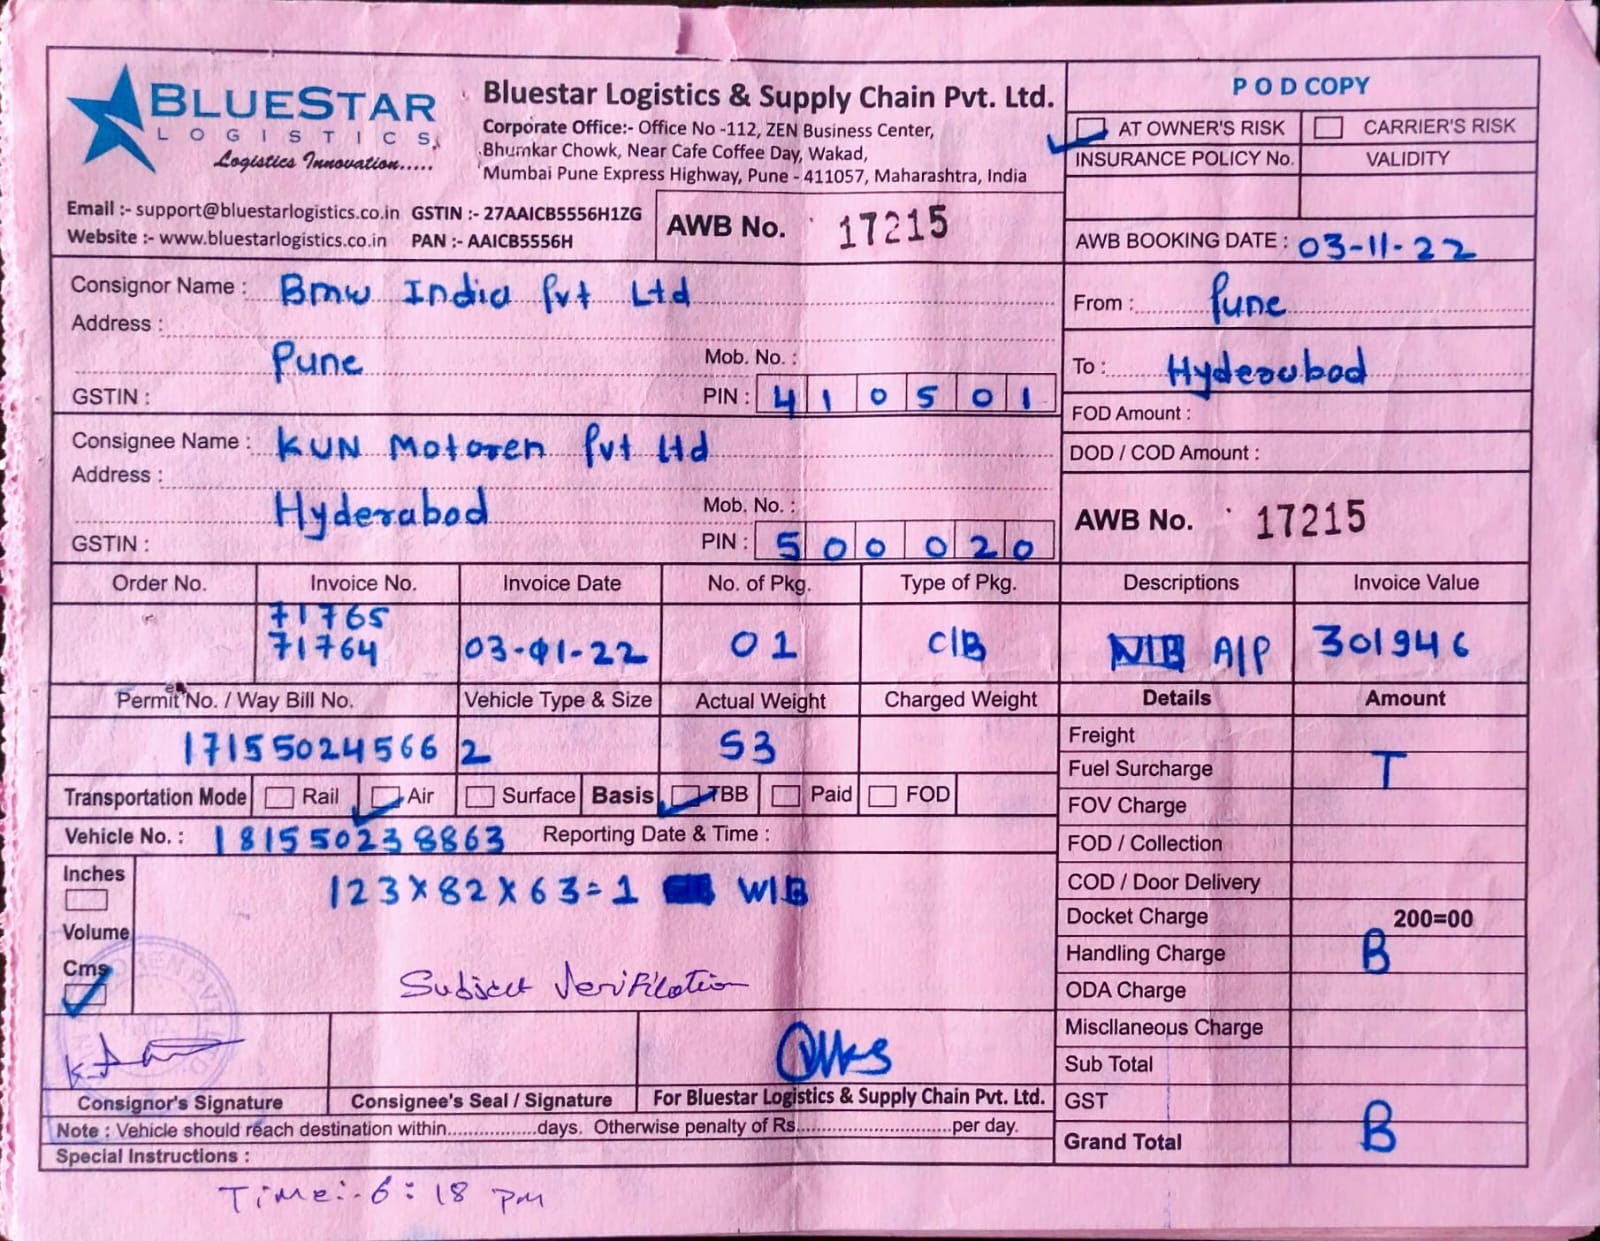 BLUESTAR
LOGISTICS
Logistics Innovation.....
Bluestar Logistics & Supply Chain Pvt. Ltd.
Corporate Office:- Office No -112, ZEN Business Center,
Bhumkar Chowk, Near Cafe Coffee Day, Wakad,
Mumbai Pune Express Highway, Pune - 411057, Maharashtra, India
Email :- support@bluestarlogistics.co.in GSTIN :- 27AAICB5556H1ZG
Website :- www.bluestarlogistics.co.in PAN :- AAICB5556H
AWB No. 17215
POD COPY
AT OWNER'S RISK CARRIER'S RISK
INSURANCE POLICY No. VALIDITY
AWB BOOKING DATE : 03-11-22
Consignor Name : Bmw India Pvt Ltd
Address :
Pune Mob. No. :
GSTIN : PIN : 410501
From : Pune
To : Hyderabad
FOD Amount :
DOD / COD Amount :
Consignee Name : KUN Motoren Pvt Ltd
Address :
Hyderabad Mob. No. :
GSTIN : PIN : 500020
AWB No. 17215
Order No. Invoice No. Invoice Date No. of Pkg. Type of Pkg. Descriptions Invoice Value
71765
71764 03-01-22 01 C/B A/P 301946
Permit No. / Way Bill No. Vehicle Type & Size Actual Weight Charged Weight Details Amount
171550245662 53
Freight
Fuel Surcharge T
FOV Charge
FOD / Collection
COD / Door Delivery
Docket Charge 200=00
Handling Charge B
ODA Charge
Miscllaneous Charge
Sub Total
GST
Grand Total B
Transportation Mode Rail Air Surface Basis TBB Paid FOD
Vehicle No. : 181550238863 Reporting Date & Time :
Inches
123x82x63=1 W/B
Volume
Cms
Subject Verification
Consignor's Signature Consignee's Seal / Signature For Bluestar Logistics & Supply Chain Pvt. Ltd.
Note : Vehicle should reach destination within.................days. Otherwise penalty of Rs.............................per day.
Special Instructions :
Time:- 6:18 pm